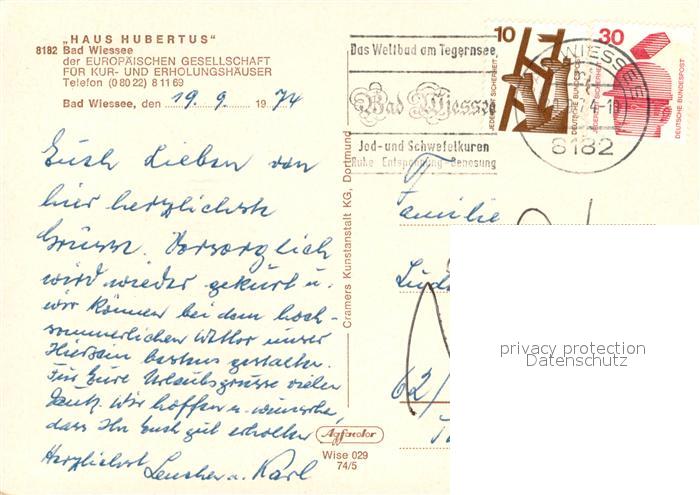 „HAUS HUBERTUS"
8182 Bad Wiessee
der EUROPÄISCHEN GESELLSCHAFT
FÜR KUR- UND ERHOLUNGSHÄUSER
Telefon (0 80 22) 8 11 69
Bad Wiessee, den 19. 9. 1974
Euch Lieben von
hier herzlichste
Grüsse. Vorsorglich
wird wieder gekurt u.
wir können bei dem hoch-
sommerlichen Wetter unser
Hiersein bestens gestalten.
Für Eure Urlaubsgrüsse vielen
Dank. Wir hoffen u. wünschen,
dass Ihr Euch gut erholtet
Herzlichst
u. Karl
Cramers Kunstanstalt KG, Dortmund
Agfacolor
Wise 029
74/5
Das Weltbad am Tegernsee
Bad Wiessee
Jod- und Schwefelkuren
Ruhe Entspannung Genesung
10
JEDERZEIT SICHERHEIT
DEUTSCHE BUNDESPOST
30
JEDERZEIT SICHERHEIT
DEUTSCHE BUNDESPOST
WIESSEE
8182
Familie
62/
privacy protection
Datenschutz